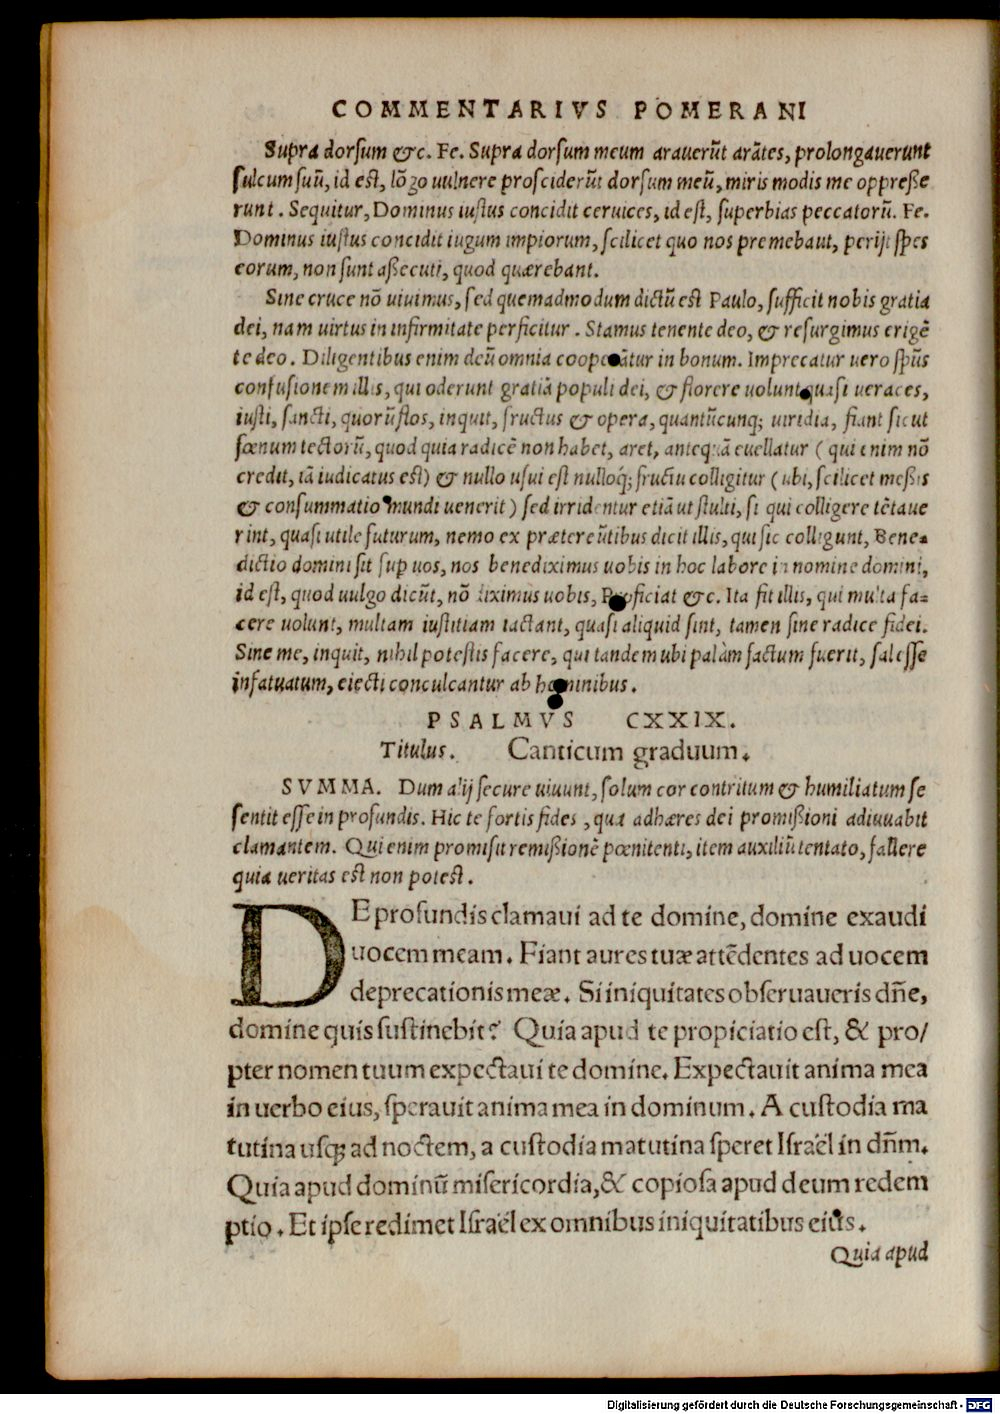 COMMENTARIVS POMERANI
Supra dorsum &c. Fe. Supra dorsum meum arauerūt arātes, prolongauerunt
sulcum suū, id est, lōgo uulnere prosciderūt dorsum meū, miris modis me oppreße
runt. Sequitur, Dominus iustus concidit ceruices, id est, superbias peccatorū. Fe.
Dominus iustus concidit iugum impiorum, scilicet quo nos premebant, perijt spes
eorum, non sunt aßecuti, quod quærebant.
Sine cruce nō uiuimus, sed quemadmodum dictū est Paulo, sufficit nobis gratia
dei, nam uirtus in infirmitate perficitur. Stamus tenente deo, & resurgimus erigē
te deo. Diligentibus enim deū omnia cooperātur in bonum. Imprecatur uero spūs
confusionem illis, qui oderunt gratiā populi dei, & florere uolunt quasi ueraces,
iusti, sancti, quorū flos, inquit, fructus & opera, quantūcunq; uiridia, fiant sicut
fœnum tectorū, quod quia radicē non habet, aret, antequā euellatur ( qui enim nō
credit, iā iudicatus est) & nullo usui est nulloq́; fructu colligitur ( ubi, scilicet meßis
& consummatio mundi uenerit ) sed irridentur etiā ut stulti, si qui colligere tētaue
rint, quasi utile futurum, nemo ex prætereūtibus dicit illis, qui sic colligunt, Bene-
dictio domini sit sup uos, nos benediximus uobis in hoc labore in nomine domini,
id est, quod uulgo dicūt, nō diximus uobis, Proficiat &c. Ita fit illis, qui multa fa=
cere uolunt, multam iustitiam iactant, quasi aliquid sint, tamen sine radice fidei.
Sine me, inquit, nihil potestis facere, qui tandem ubi palàm factum fuerit, sal esse
infatuatum, eiecti conculcantur ab hominibus.
PSALMVS CXXIX.
Titulus. Canticum graduum.
SVMMA. Dum alij secure uiuunt, solum cor contritum & humiliatum se
sentit esse in profundis. Hic te fortis fides, qua adhæres dei promißioni adiuuabit
clamantem. Qui enim promisit remißionē pœnitenti, item auxiliū tentato, fallere
quia ueritas est non potest.
DE profundis clamaui ad te domine, domine exaudi
uocem meam. Fiant aures tuæ attēdentes ad uocem
deprecationis meæ. Si iniquitates obseruaueris dñe,
domine quis sustinebit? Quia apud te propiciatio est, & pro/
pter nomen tuum expectaui te domine. Expectauit anima mea
in uerbo eius, sperauit anima mea in dominum. A custodia ma
tutina usq; ad noctem, a custodia matutina speret Israël in dñm.
Quia apud dominū misericordia, & copiosa apud deum redem
ptio. Et ipse redimet Israël ex omnibus iniquitatibus eius.
Quia apud
Digitalisierung gefördert durch die Deutsche Forschungsgemeinschaft - DFG